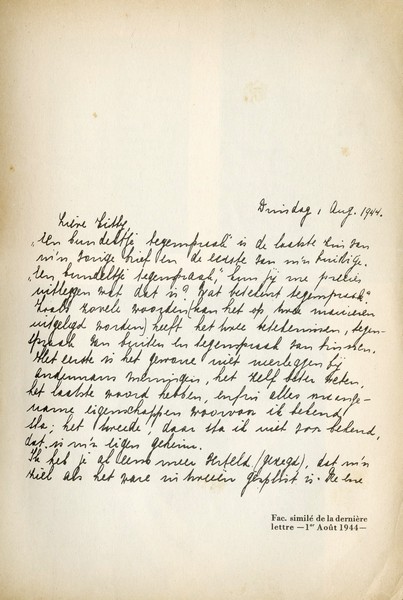 Dinsdag, 1 Aug. 1944.
Lieve Kitty,
„Een bundeltje tegenspraak” is de laatste zin van
m'n vorige brief en de eerste van m'n huidige.
„Een bundeltje tegenspraak”, kun jij me precies
uitleggen wat dat is? Wat betekent tegenspraak?
Zoals zovele woorden (kan het op twee manieren
uitgelegd worden) heeft het twee betekenissen, tegen-
spraak van buiten en tegenspraak van binnen.
Het eerste is het gewone niet neerleggen bij
andermans meningen, het zelf beter weten,
het laatste woord hebben, enfin alles onaange-
name eigenschappen waarvoor ik bekend
sta; het tweede, daar sta ik niet voor bekend,
dat is m'n eigen geheim.
Ik heb je al eens meer verteld (gezegd), dat m'n
ziel als het ware in tweeën gesplitst is. De ene
Fac. similé de la dernière
lettre —1er Août 1944—